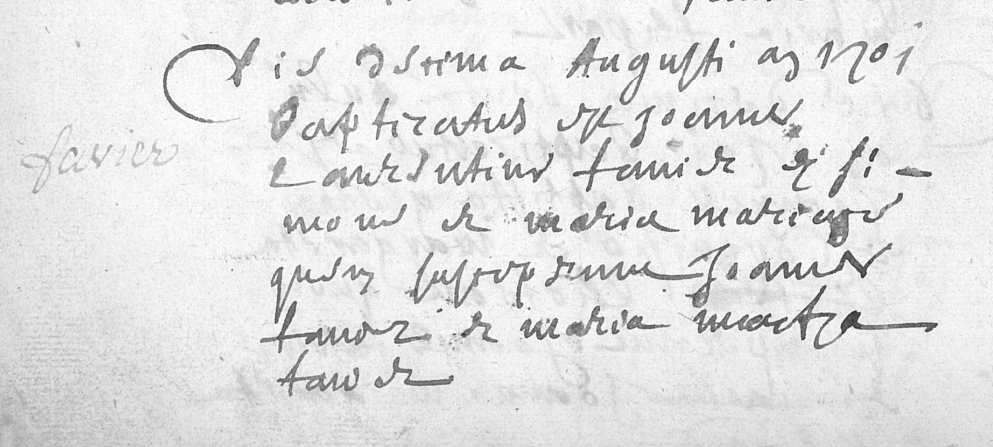 Die decima Augusti ao 1701
Baptizatus est Joannes
Laurentius favier ex si-
mone et maria mariage
quem susceperunt Joannes
favier et maria martha
favier
favier